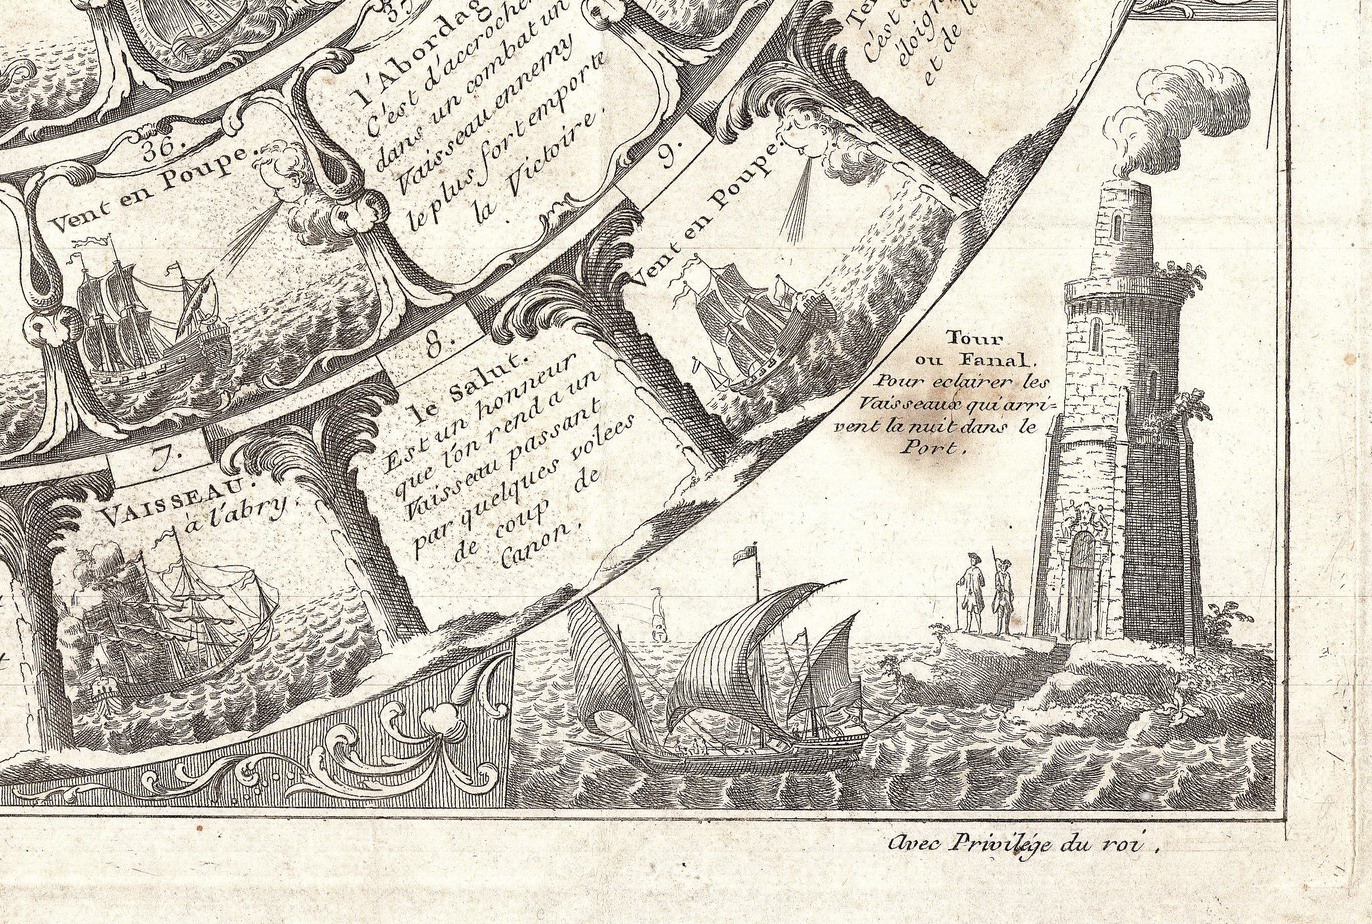 37.
l'Abordag
C'est d'accrocher
dans un combat un
Vaisseau ennemy
le plus fort emporte
la Victoire.
C'est
éloign
et de la
36.
Vent en Poupe.
9.
Vent en Poupe.
8.
le Salut.
Est un honneur
que l'on rend a un
Vaisseau passant
par quelques volées
de coup de
Canon.
7.
VAISSEAU.
à l'abry.
Tour
ou Fanal.
Pour eclairer les
Vaisseaux qui arri-
vent la nuit dans le
Port.
Avec Privilége du roi.